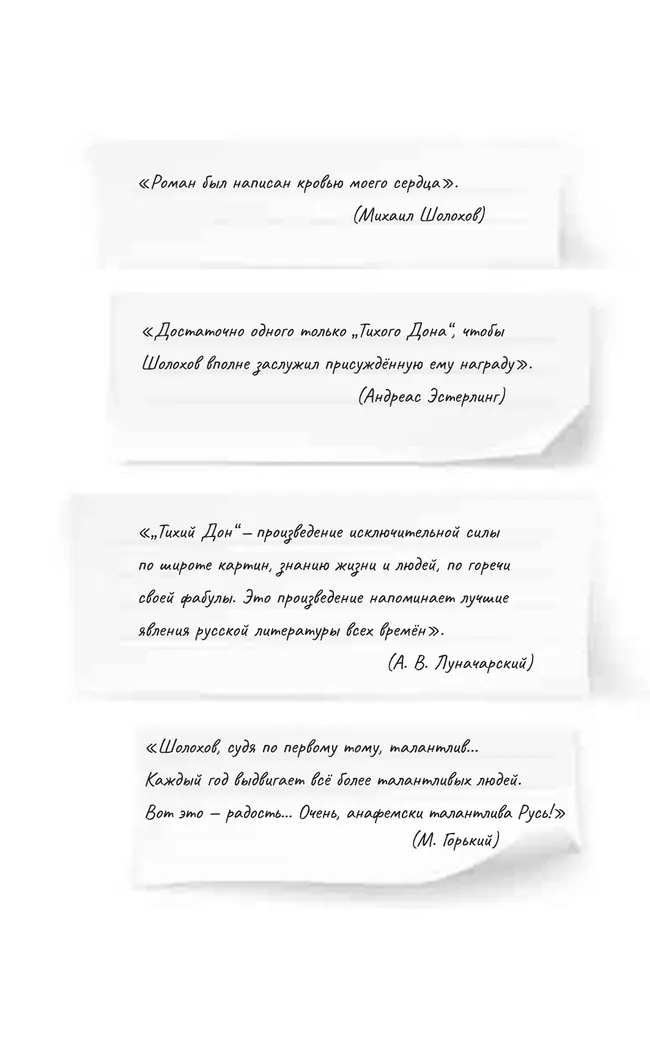 «Роман был написан кровью моего сердца».
(Михаил Шолохов)
«Достаточно одного только „Тихого Дона“, чтобы
Шолохов вполне заслужил присуждённую ему награду».
(Андреас Эстерлинг)
«„Тихий Дон“ — произведение исключительной силы
по широте картин, знанию жизни и людей, по горечи
своей фабулы. Это произведение напоминает лучшие
явления русской литературы всех времён».
(А. В. Луначарский)
«Шолохов, судя по первому тому, талантлив...
Каждый год выдвигает всё более талантливых людей.
Вот это — радость... Очень, анафемски талантлива Русь!»
(М. Горький)